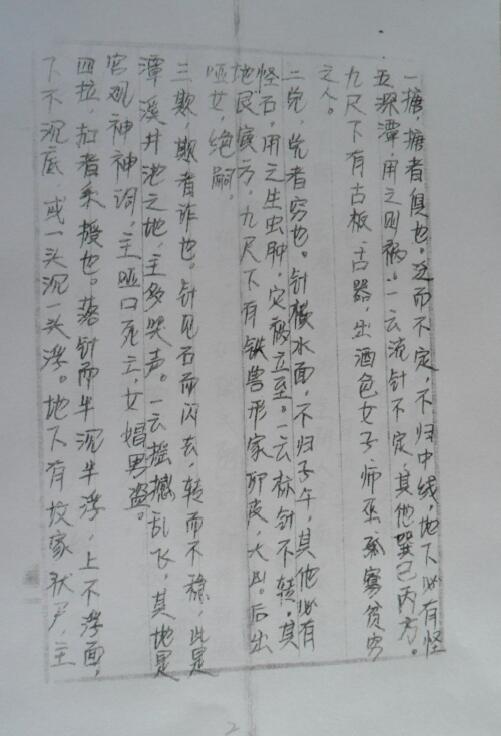 一搪，搪者惧也。泛而不定，不归中线，地下必有怪
五深潭，用之则祸。一云流针不定，其他巽巳丙方。
九尺下有古板、古器，出酒色女子，师巫、孤寡贫穷
之人。
二兑，兑者突也。针横水面，不归子午，其他必有
怪石，用之生虫肿，定祸立至。一云标针不转，其
地艮寅方，九尺下有铁兽形家卵皮，大凶。后出
哑女，绝嗣。
三欺，欺者诈也。针见石而闪去，转而不稳，此是
潭溪井池之地，主多哭声。一云摇撼乱飞，其地是
宫观神神祠，主哑口死亡，女娼男盗。
四拉，拉者柔也。落针而半沉半浮，上不浮面，
下不沉底，或一头沉一头浮。地下有坟冢伏尸，主
2